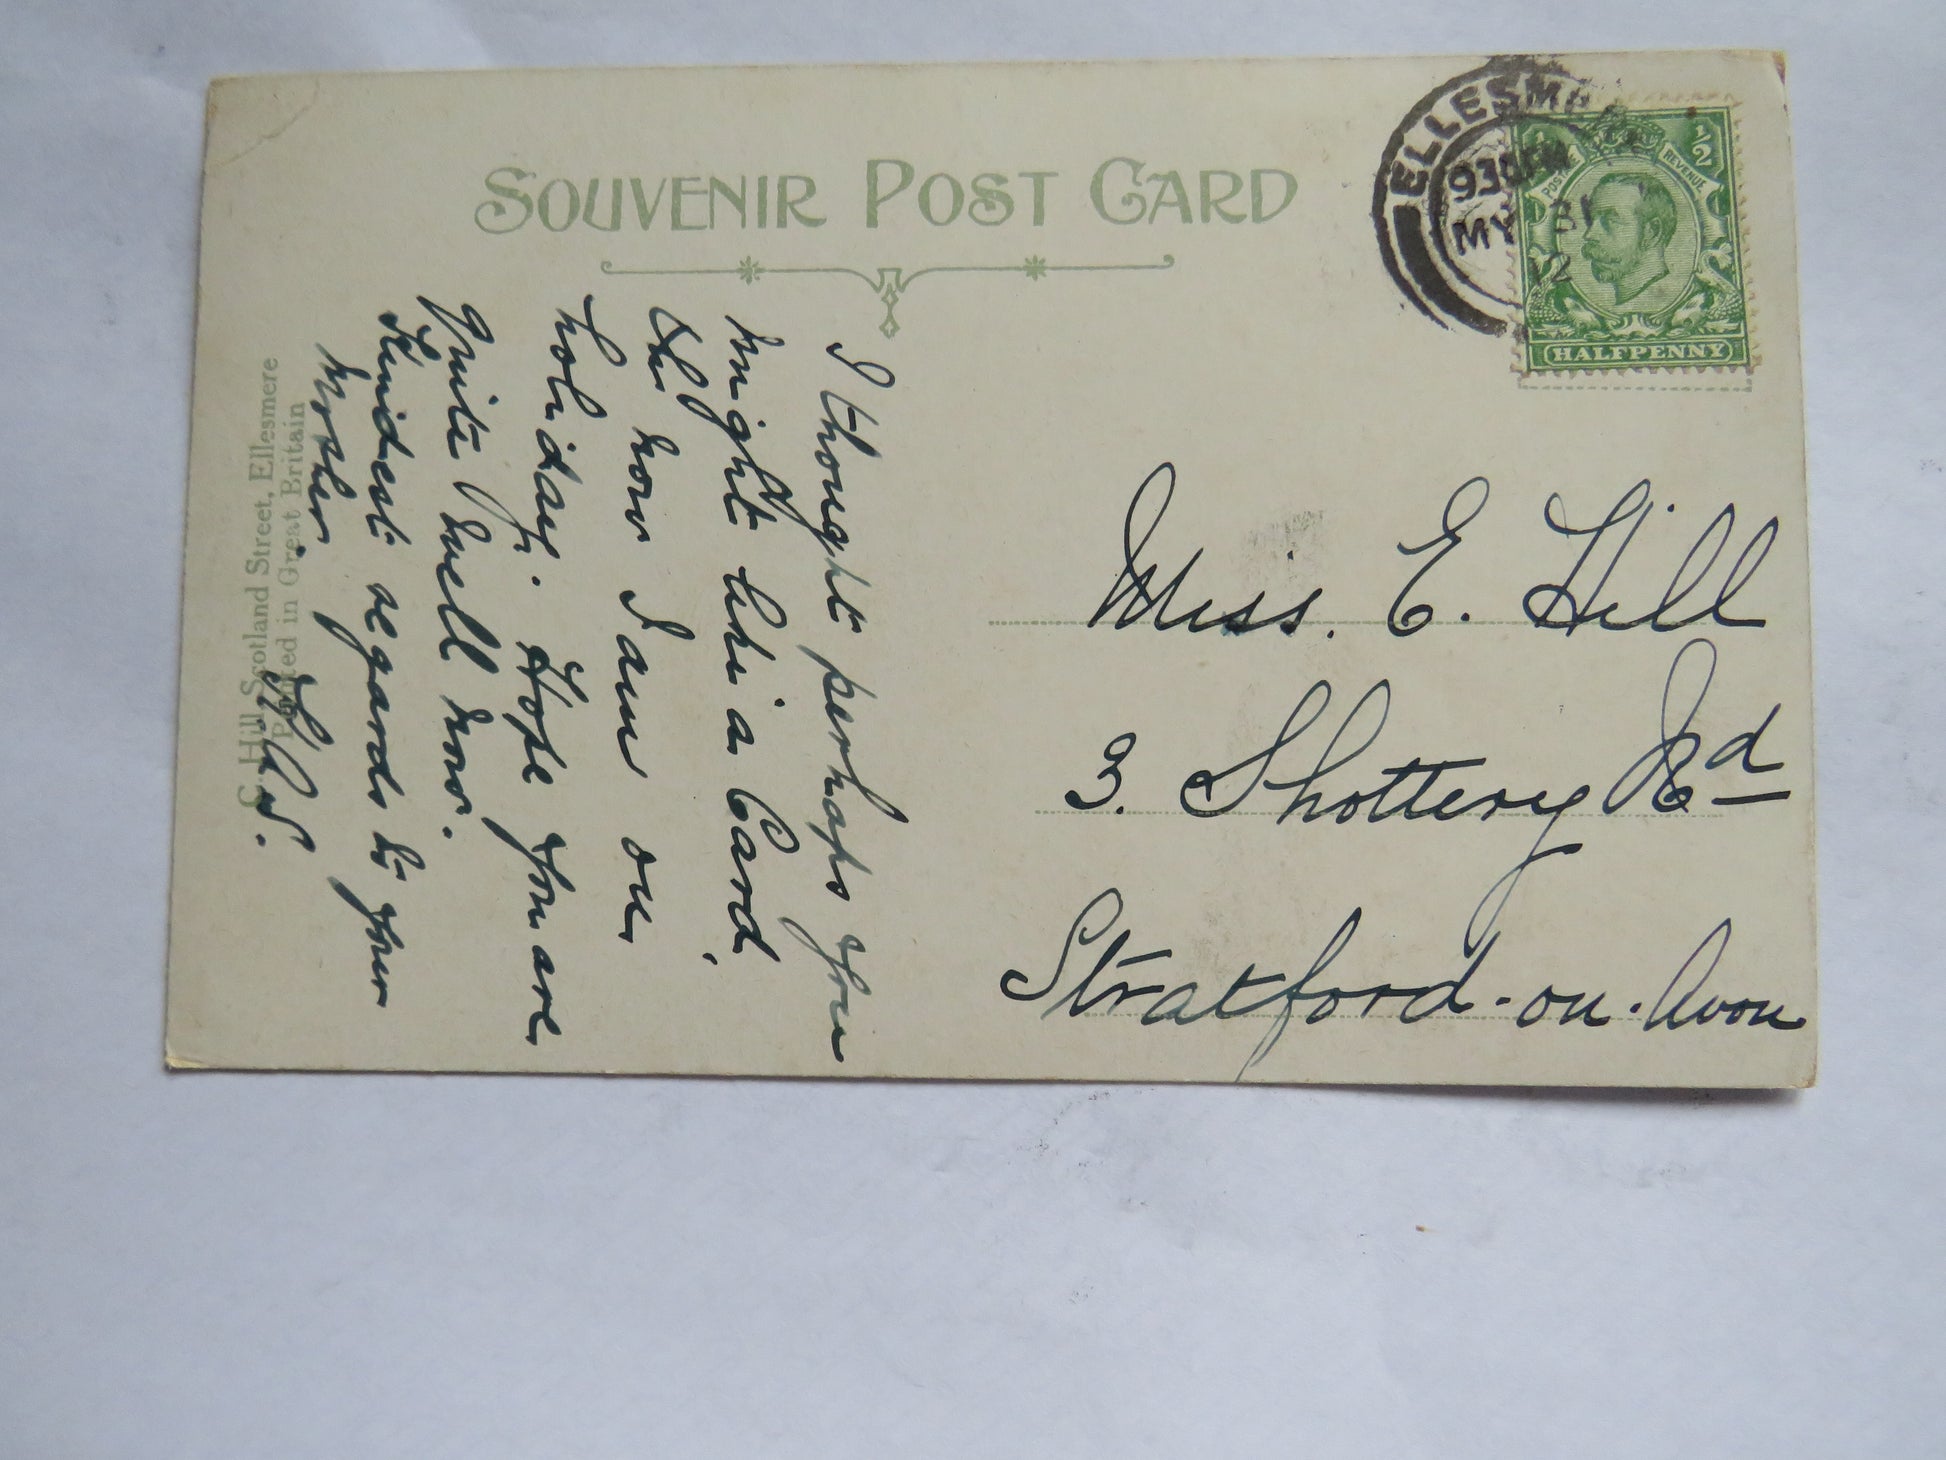 SOUVENIR POST CARD
ELLESMERE
930PM
MY 31
12
½
½
POSTAGE
REVENUE
HALFPENNY
I thought perhaps you
might like a Card,
now I am on
holiday. Hope you are
quite well now.
Kindest regards to your
Mother.
Miss. E. Hill
3. Shottery Rd
Stratford-on-Avon
C. Hill, Scotland Street, Ellesmere
Printed in Great Britain